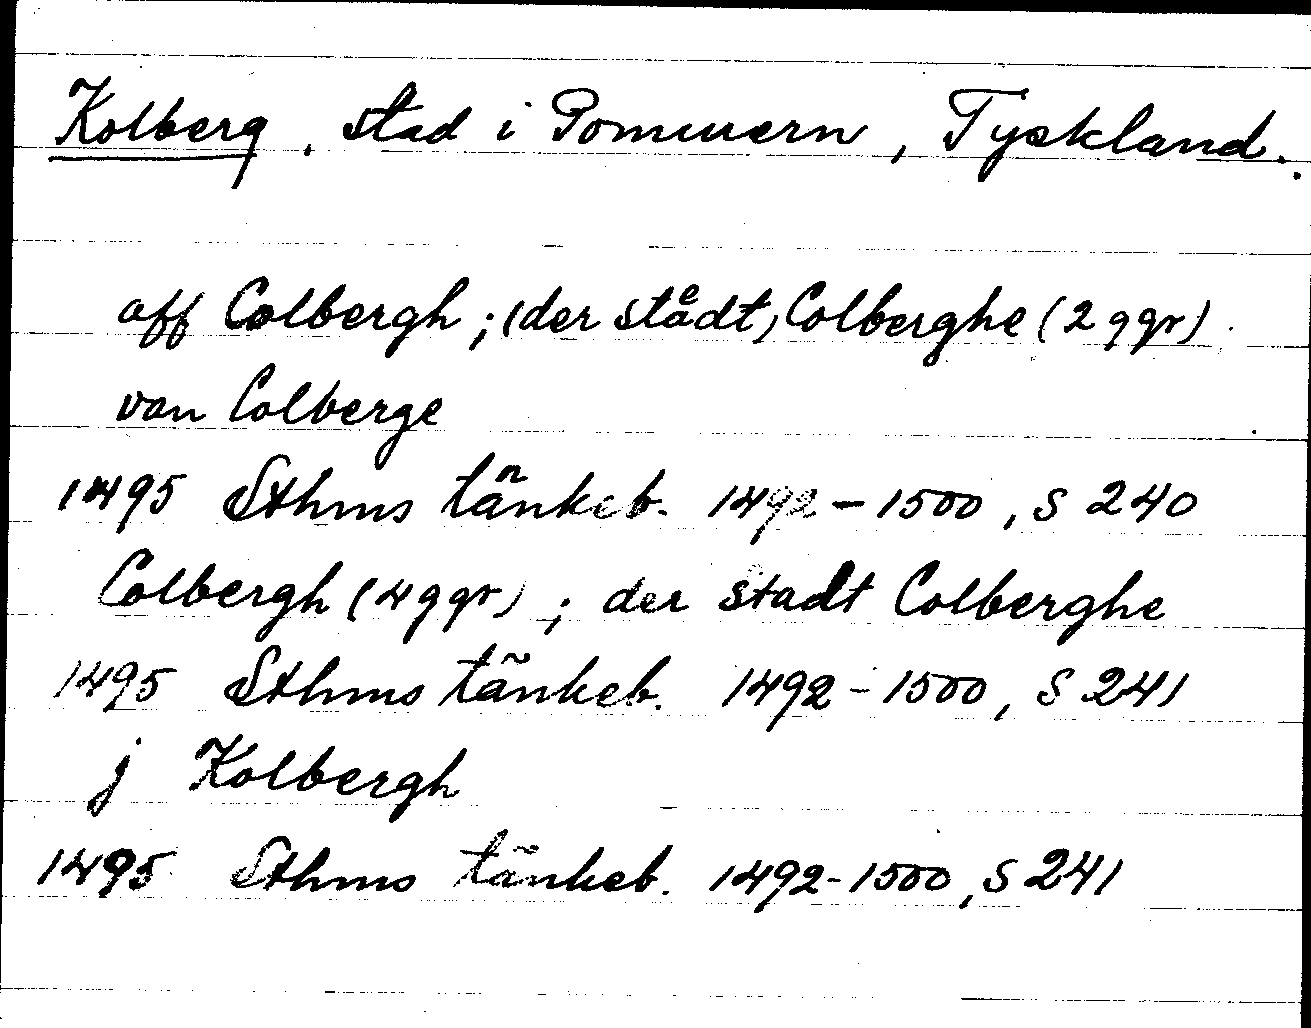 Kolberg, stad i Pommern, Tyskland.
aff Colbergh; (der stådt) Colberghe (2 ggr)
van Colberge
1495 Sthms tänkeb. 1492-1500, s 240
Colbergh (4 ggr); der stadt Colberghe
1495 Sthms tänkeb. 1492-1500, s 241
j Kolbergh
1495 Sthms tänkeb. 1492-1500, s 241